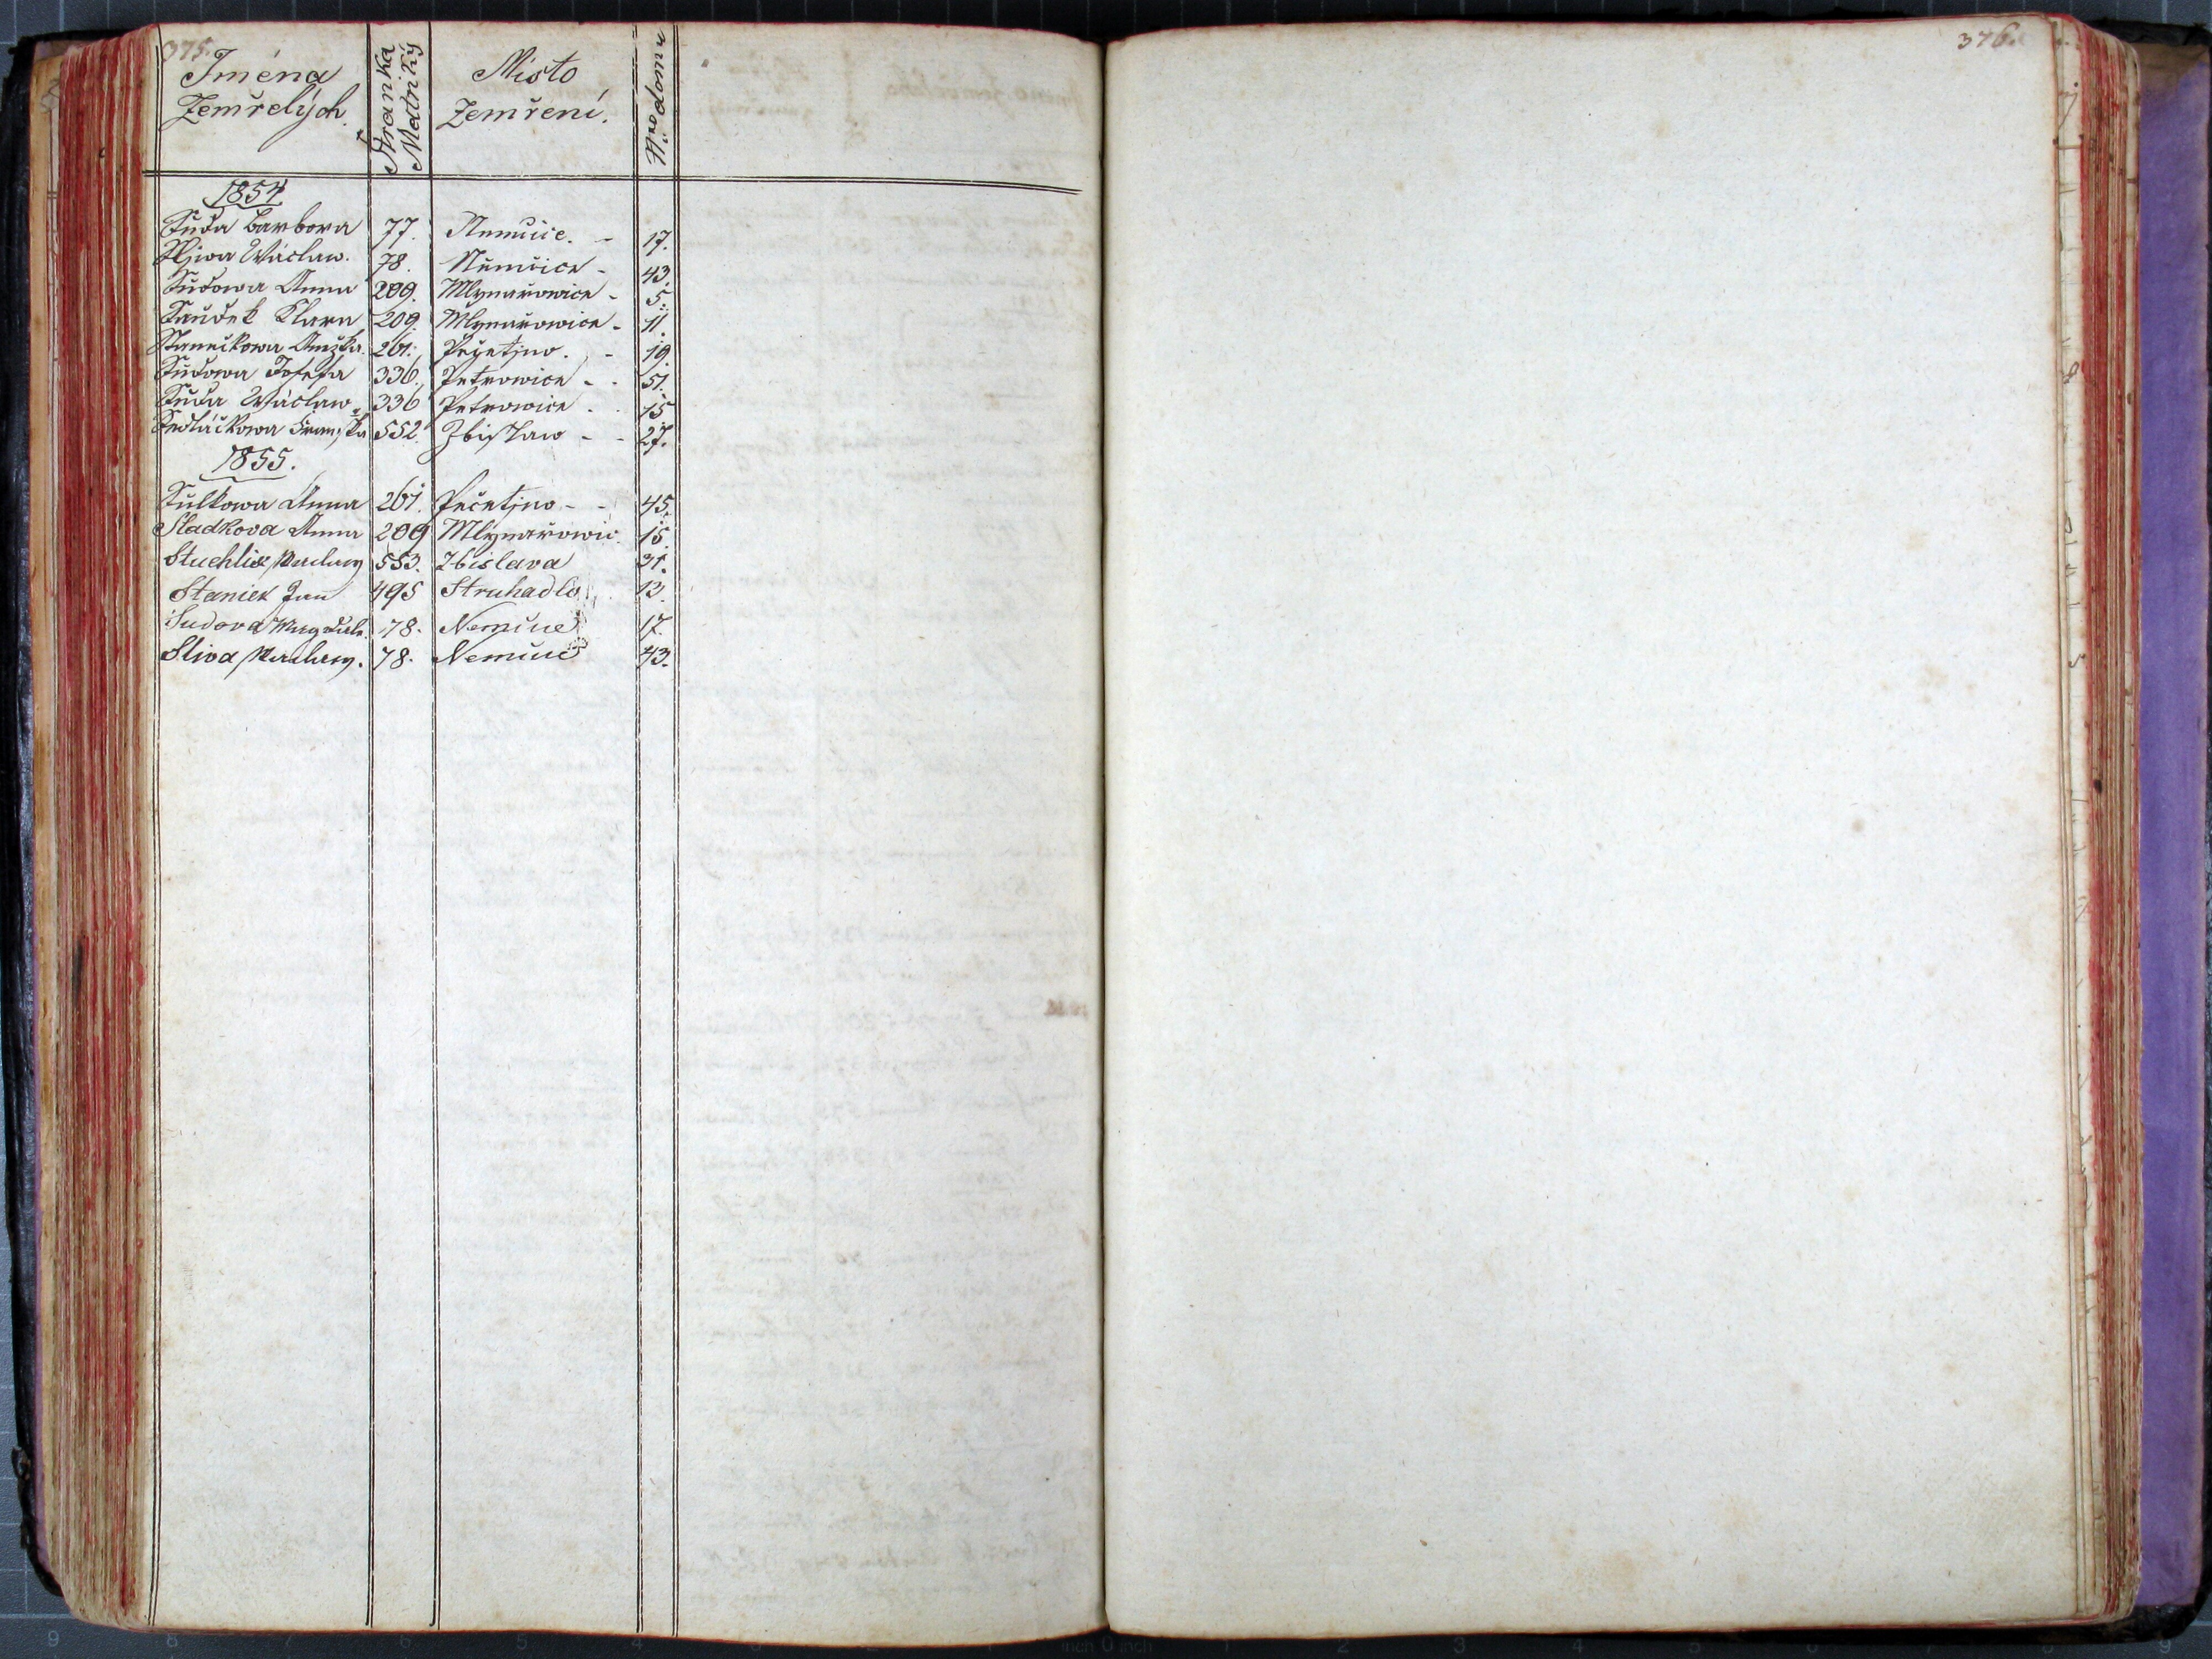 375.
Jména Zemřelých.
Stranka Matriky
Místo Zemření.
Nro domu
1854
Suda Barbora 77. Nemčice. - 17.
Sljwa Wáclaw. 78. Němčice - 43.
Sudowa Anna 209. Mlynařowice - 5.
Saudek Klara 209. Mlynařowice - 11.
Stanečkowa Anežka 261. Pečetjno. - 19.
Sudowa Josefa 336. Petrowice - . 51.
Suda Wáclaw 336 Petrowice . . 15
Sedláčkowa 552. Zbislaw - - 27.
1855.
Sulkowa Anna 261. Pečetjno - - 45.
Sladkova Anna 209 Mlýnařowic. 15
Stuchlik 553. Zbislava 31.
Staniek Jan 495 Struhadlo 13.
Sudova Magdale. 78. Nemčice 17.
Sliva 78. Nemčice 43.
376.